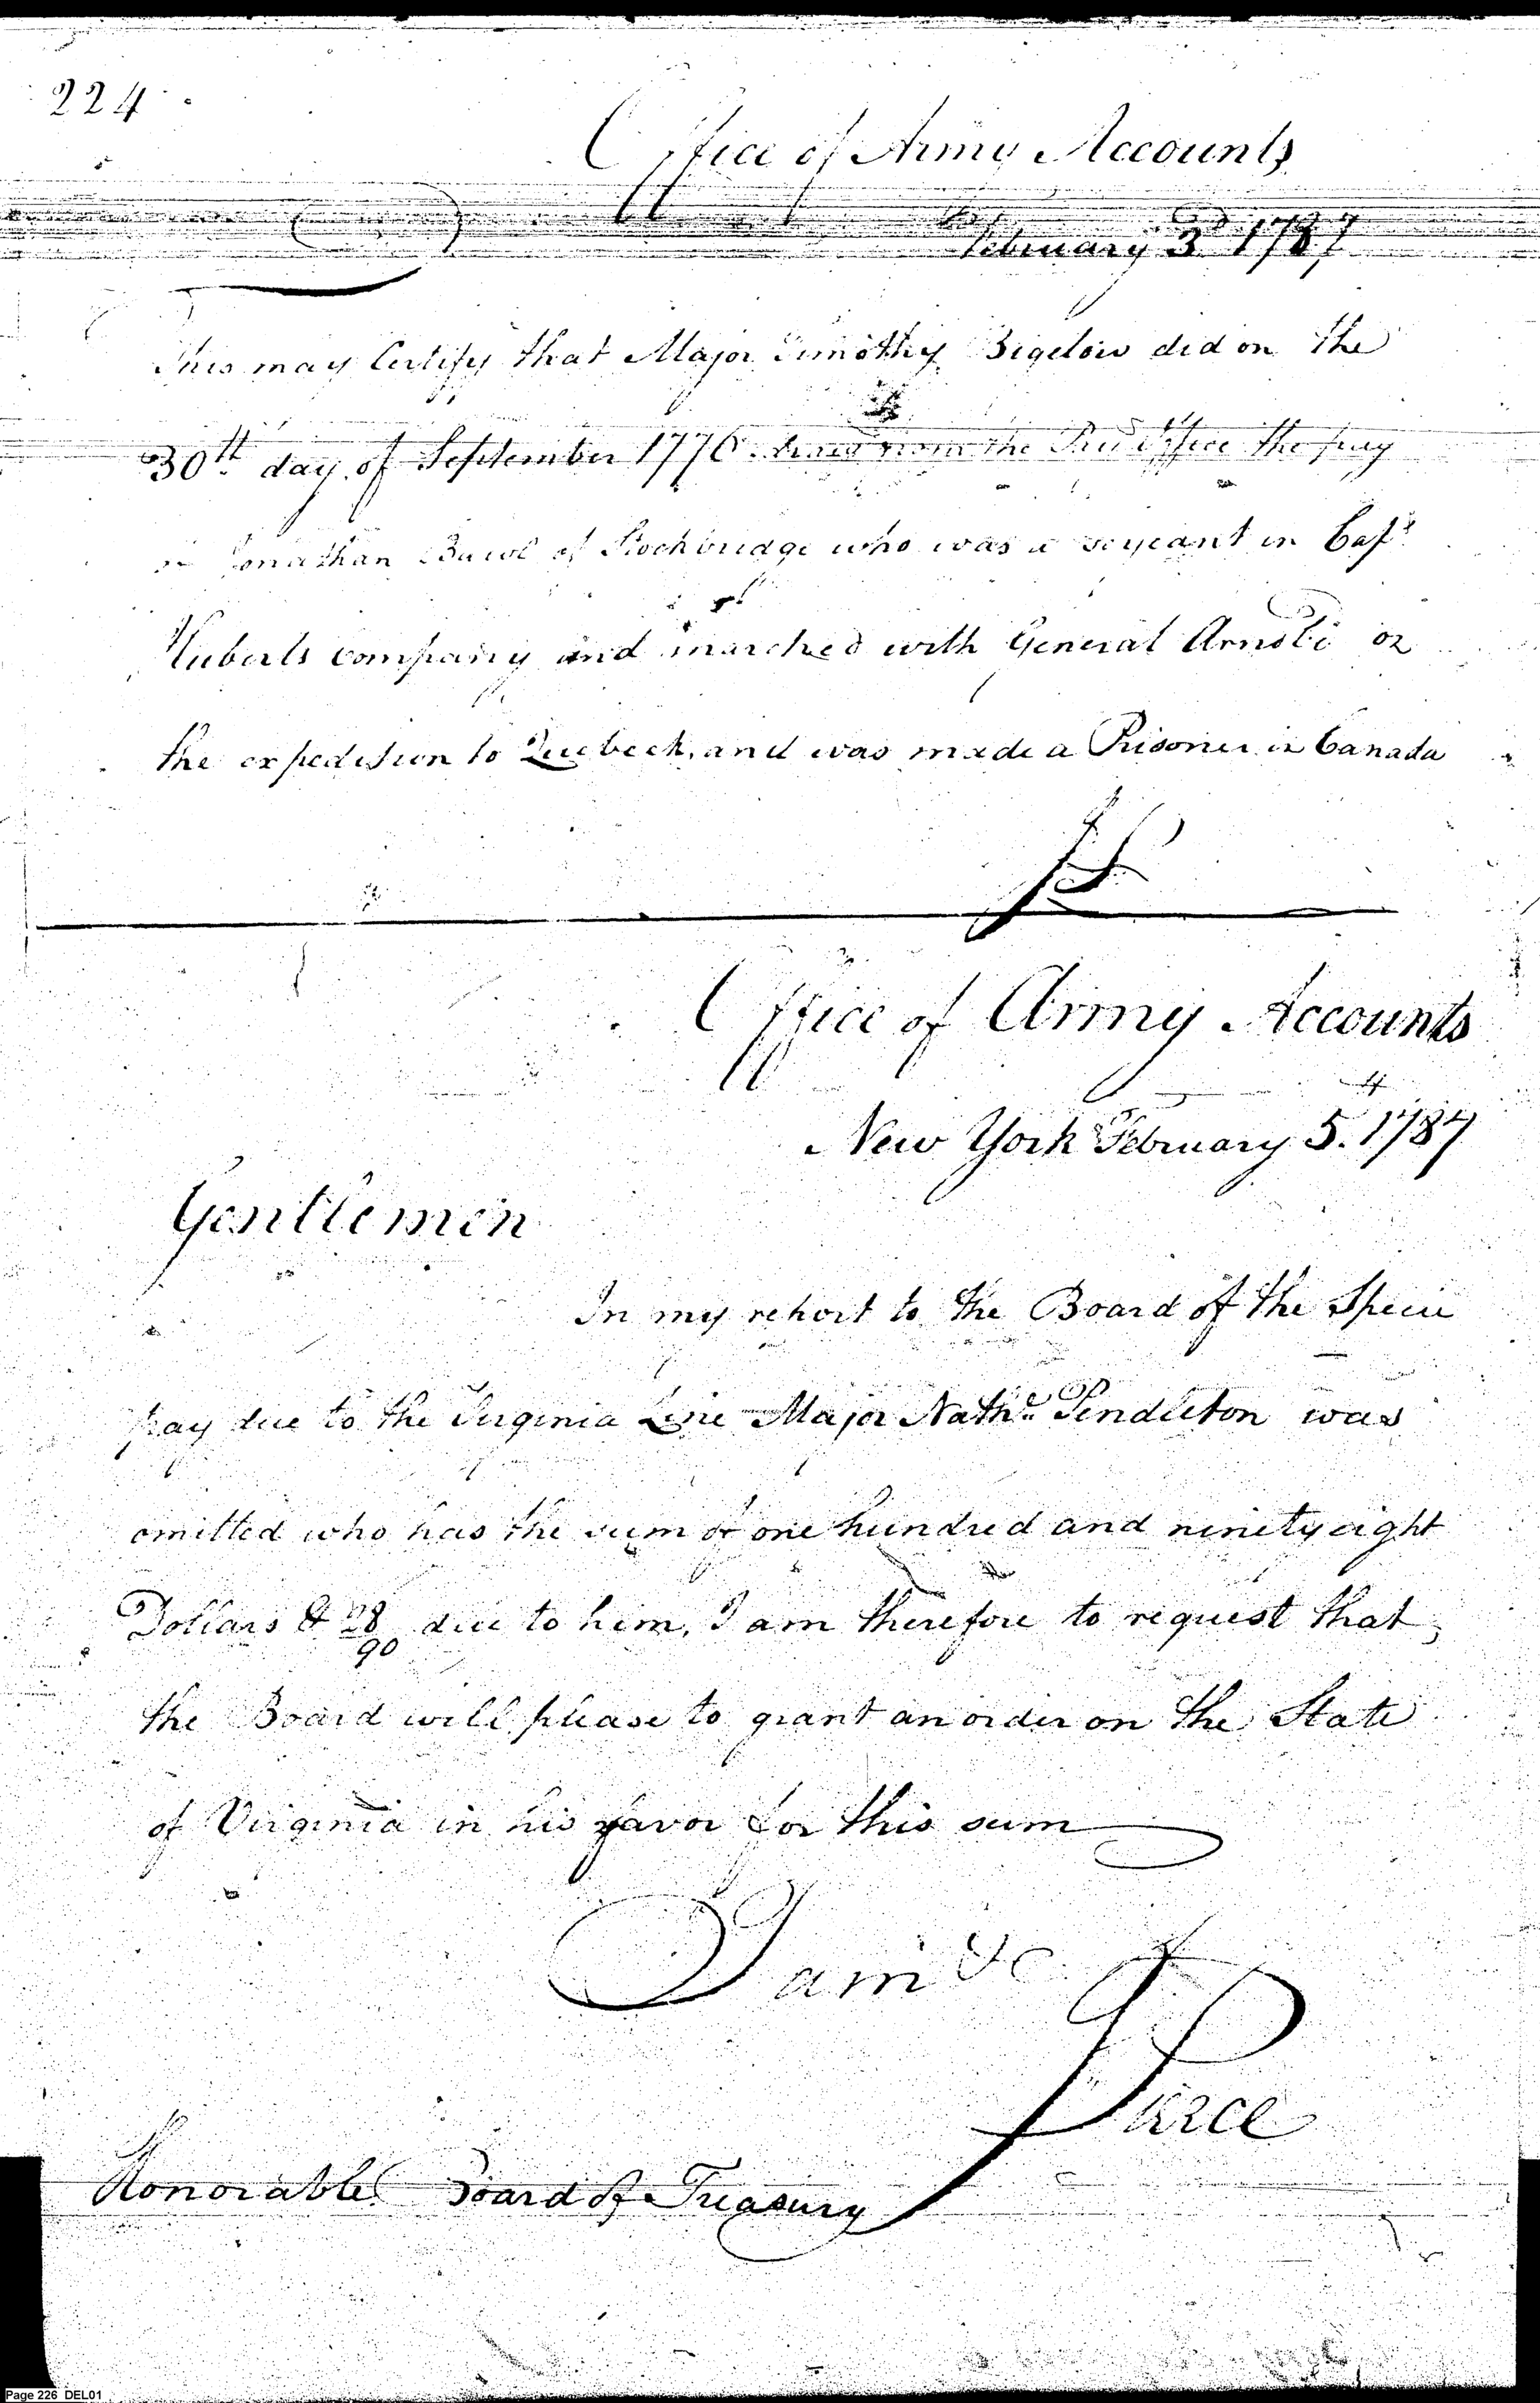 224
Office of Army Accounts
February 3d 1787
This may Certify that Major Timothy Bigelow did on the
30th day of September 1776 from the Office the pay
Jonathan of Stockbridge who was a serjeant in Capt
Huberts company and marched with General Arnold on
the expedition to Quebeck, and was made a Prisoner in Canada
Office of Army Accounts
New York February 5. 1787
Gentlemen
In my report to the Board of the Specie
pay due to the Virginia Line Major Nathl. Pendleton was
omitted who has the sum of one hundred and ninety eight
Dollars & 28/90 due to him, I am therefore to request that
the Board will please to grant an order on the State
of Virginia in his favor for this sum
I am &c
J Pierce
Honorable Board of Treasury
Page 226 DEL01